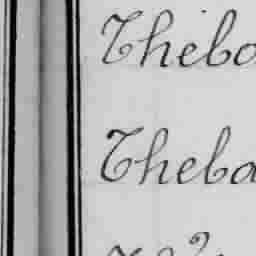 Theba
Theba